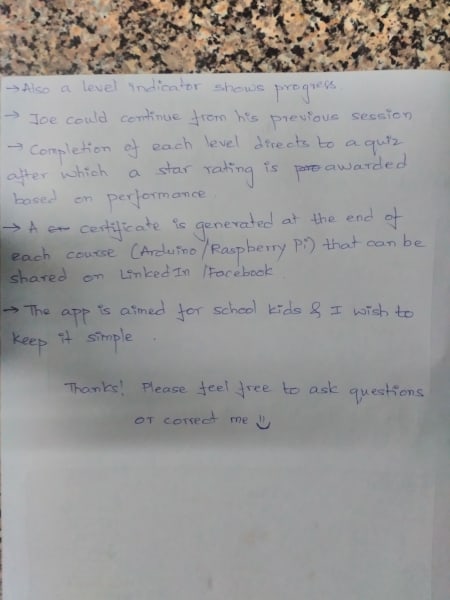 → Also a level indicator shows progress.
→ Joe could continue from his previous session
→ Completion of each level directs to a quiz
after which a star rating is awarded
based on performance.
→ A certificate is generated at the end of
each course (Arduino/Raspberry Pi) that can be
shared on LinkedIn /Facebook.
→ The app is aimed for school kids & I wish to
keep it simple.
Thanks! Please feel free to ask questions
or correct me